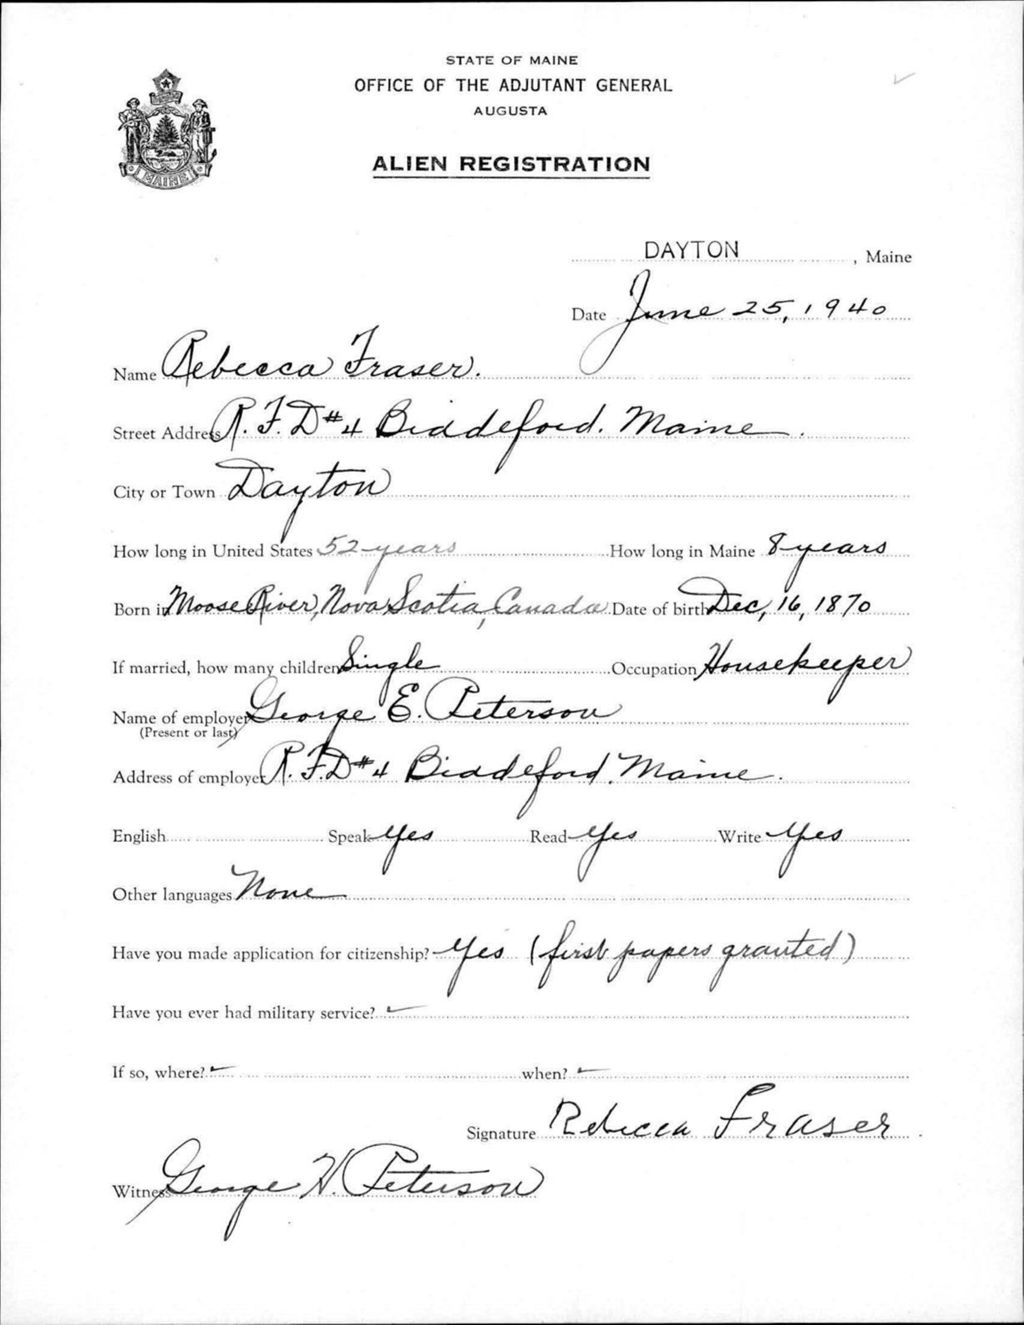 STATE OF MAINE
OFFICE OF THE ADJUTANT GENERAL
AUGUSTA
ALIEN REGISTRATION
MAINE
DAYTON, Maine
Date June 25, 1940
Name Rebecca Fraser.
Street Address R.F.D #4 Biddeford. Maine.
City or Town Dayton
How long in United States 52 years How long in Maine 8 years
Born in Moose River, Nova Scotia, Canada Date of birth Dec, 16, 1870
If married, how many children Single Occupation Housekeeper
Name of employer George E. Peterson
(Present or last)
Address of employer R.F.D #4 Biddeford, Maine.
English Speak Yes Read Yes Write Yes
Other languages None
Have you made application for citizenship? Yes (first papers granted)
Have you ever had military service? -
If so, where? - when? -
Signature Rebecca Fraser.
Witness George H. Peterson